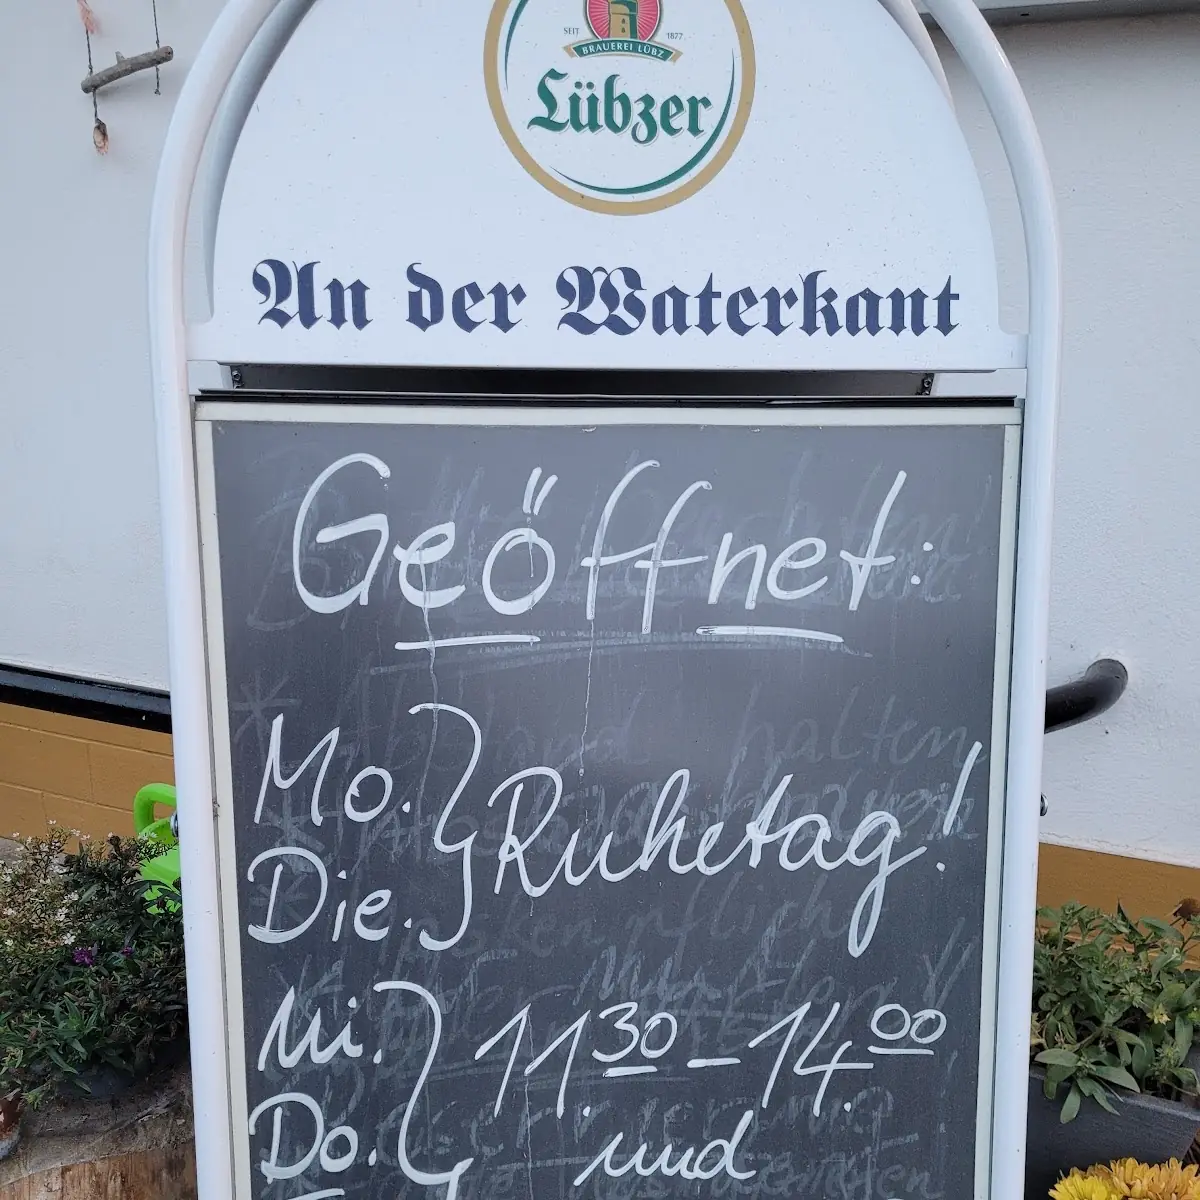 SEIT 1877
BRAUEREI LÜBZ
Lübzer
An der Waterkant
Geöffnet:
Mo.
Die.
Ruhetag!
Mi.
Do.
11.30 – 14.00
und